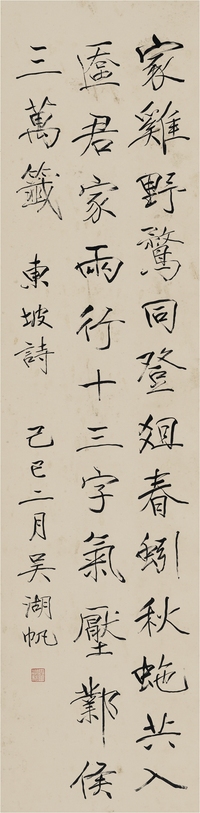 家雞野鶩同登爼春蚓秋虵共入
匳君家兩行十三字氣壓鄴侯
三萬籤 東坡詩 己巳二月吳湖帆